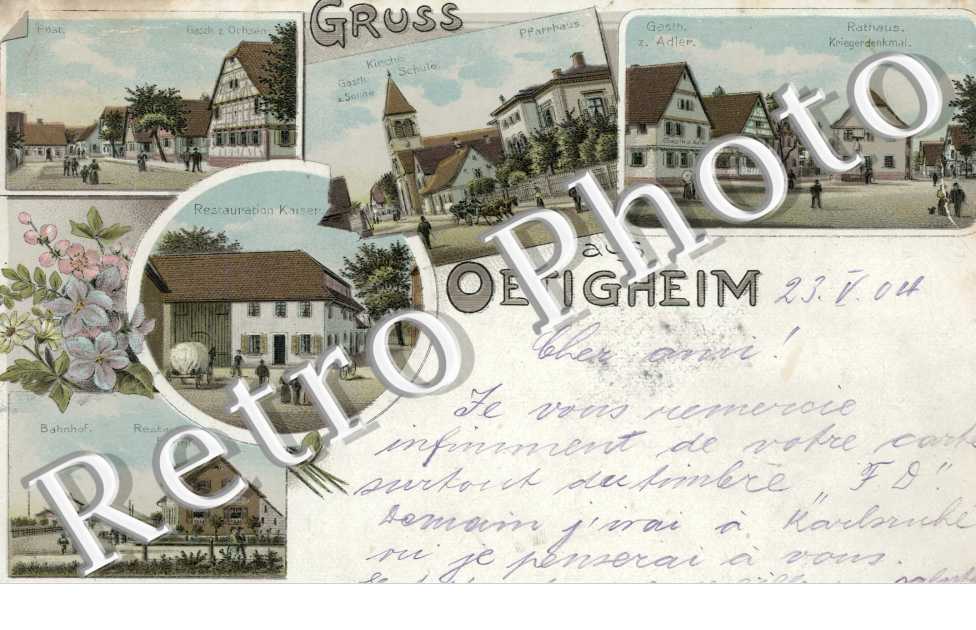 GRUSS
aus
OETIGHEIM
Post.
Gasth. z. Ochsen.
Kirche
Schule.
Pfarrhaus.
Gasth.
z. Sonne
Gasth.
z. Adler.
Rathaus.
Kriegerdenkmal.
Restauration Kaiser.
Bahnhof.
23. V. 04
Cher ami!
Je vous remercie
infiniment de votre
surtout du timbre "F D".
Demain j'irai à Karlsruhe
ou je penserai à vous.
Retro Photo